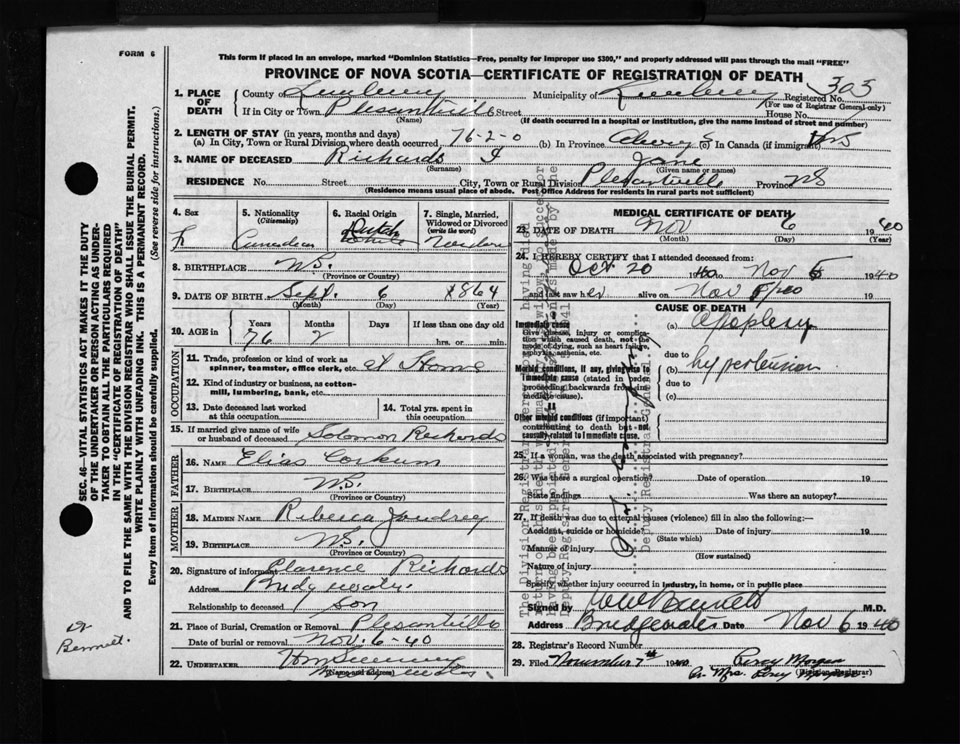 FORM 6
This form if placed in an envelope, marked "Dominion Statistics—Free, penalty for improper use $300," and properly addressed will pass through the mail "FREE"
PROVINCE OF NOVA SCOTIA—CERTIFICATE OF REGISTRATION OF DEATH
303
1. PLACE OF DEATH
County of Lunenburg Municipality of Lunenburg Registered No.
(For use of Registrar General only)
If in City or Town Plesantville Street House No.
(Name) (If death occurred in a hospital or institution, give the name instead of street and number)
2. LENGTH OF STAY (in years, months and days)
(a) In City, Town or Rural Division where death occurred 76-2-0 (b) In Province Always (c) In Canada (if immigrant)
3. NAME OF DECEASED Richards Jane
(Surname) (Given name or names)
RESIDENCE No. Street City, Town or Rural Division Plesantville Province NS
(Residence means usual place of abode. Post Office Address for residents in rural parts not sufficient)
4. Sex F
5. Nationality (Citizenship) Canadian
6. Racial Origin Dutch
7. Single, Married, Widowed or Divorced (write the word) Widow
8. BIRTHPLACE N.S.
(Province or Country)
9. DATE OF BIRTH Sept. 6 1864
(Month) (Day) (Year)
10. AGE in Years Months Days If less than one day old
76 2 hrs. or min.
OCCUPATION
11. Trade, profession or kind of work as spinner, teamster, office clerk, etc. at Home
12. Kind of industry or business, as cotton-mill, lumbering, bank, etc.
13. Date deceased last worked at this occupation
14. Total yrs. spent in this occupation
15. If married give name of wife or husband of deceased Solomon Richards
FATHER
16. NAME Elias Corkum
17. BIRTHPLACE N.S.
(Province or Country)
MOTHER
18. MAIDEN NAME Rebecca Joudrey
19. BIRTHPLACE N.S.
(Province or Country)
20. Signature of informant Clarence Richards
Address Bridgewater
Relationship to deceased Son
21. Place of Burial, Cremation or Removal Plesantville
Date of burial or removal Nov. 6-40
22. UNDERTAKER
(Name and address)
MEDICAL CERTIFICATE OF DEATH
23. DATE OF DEATH Nov 6 1940
(Month) (Day) (Year)
24. I HEREBY CERTIFY that I attended deceased from:
Oct 20 1940 to Nov 5 1940
and last saw her alive on Nov 5 1940
CAUSE OF DEATH
Immediate cause
Give disease, injury or complication which caused death, not the mode of dying, such as heart failure, asphyxia, asthenia, etc.
(a) Apoplexy
due to
Morbid conditions, if any, giving rise to immediate cause (stated in order proceeding backwards from immediate cause)
(b) hypertension
due to
(c)
II
Other morbid conditions (if important) contributing to death but not causally related to immediate cause.
25. If a woman, was the death associated with pregnancy?
26. Was there a surgical operation? Date of operation 19
State findings Was there an autopsy?
27. If death was due to external causes (violence) fill in also the following:—
Accident, suicide or homicide? Date of injury 19
(State which)
Manner of injury
(How sustained)
Nature of injury
Specify whether injury occurred in industry, in home, or in public place
Signed by M.D.
Address Bridgewater Date Nov 6 1940
28. Registrar's Record Number
29. Filed November 7th 1940 Percy Morgan
(Division Registrar)
SEC. 46—VITAL STATISTICS ACT MAKES IT THE DUTY
OF THE UNDERTAKER OR PERSON ACTING AS UNDER-
TAKER TO OBTAIN ALL THE PARTICULARS REQUIRED
IN THE "CERTIFICATE OF REGISTRATION OF DEATH"
AND TO FILE THE SAME WITH THE DIVISION REGISTRAR WHO SHALL ISSUE THE BURIAL PERMIT.
WRITE PLAINLY WITH UNFADING INK. THIS IS A PERMANENT RECORD.
Every item of information should be carefully supplied. (See reverse side for instructions.)
Bennett.